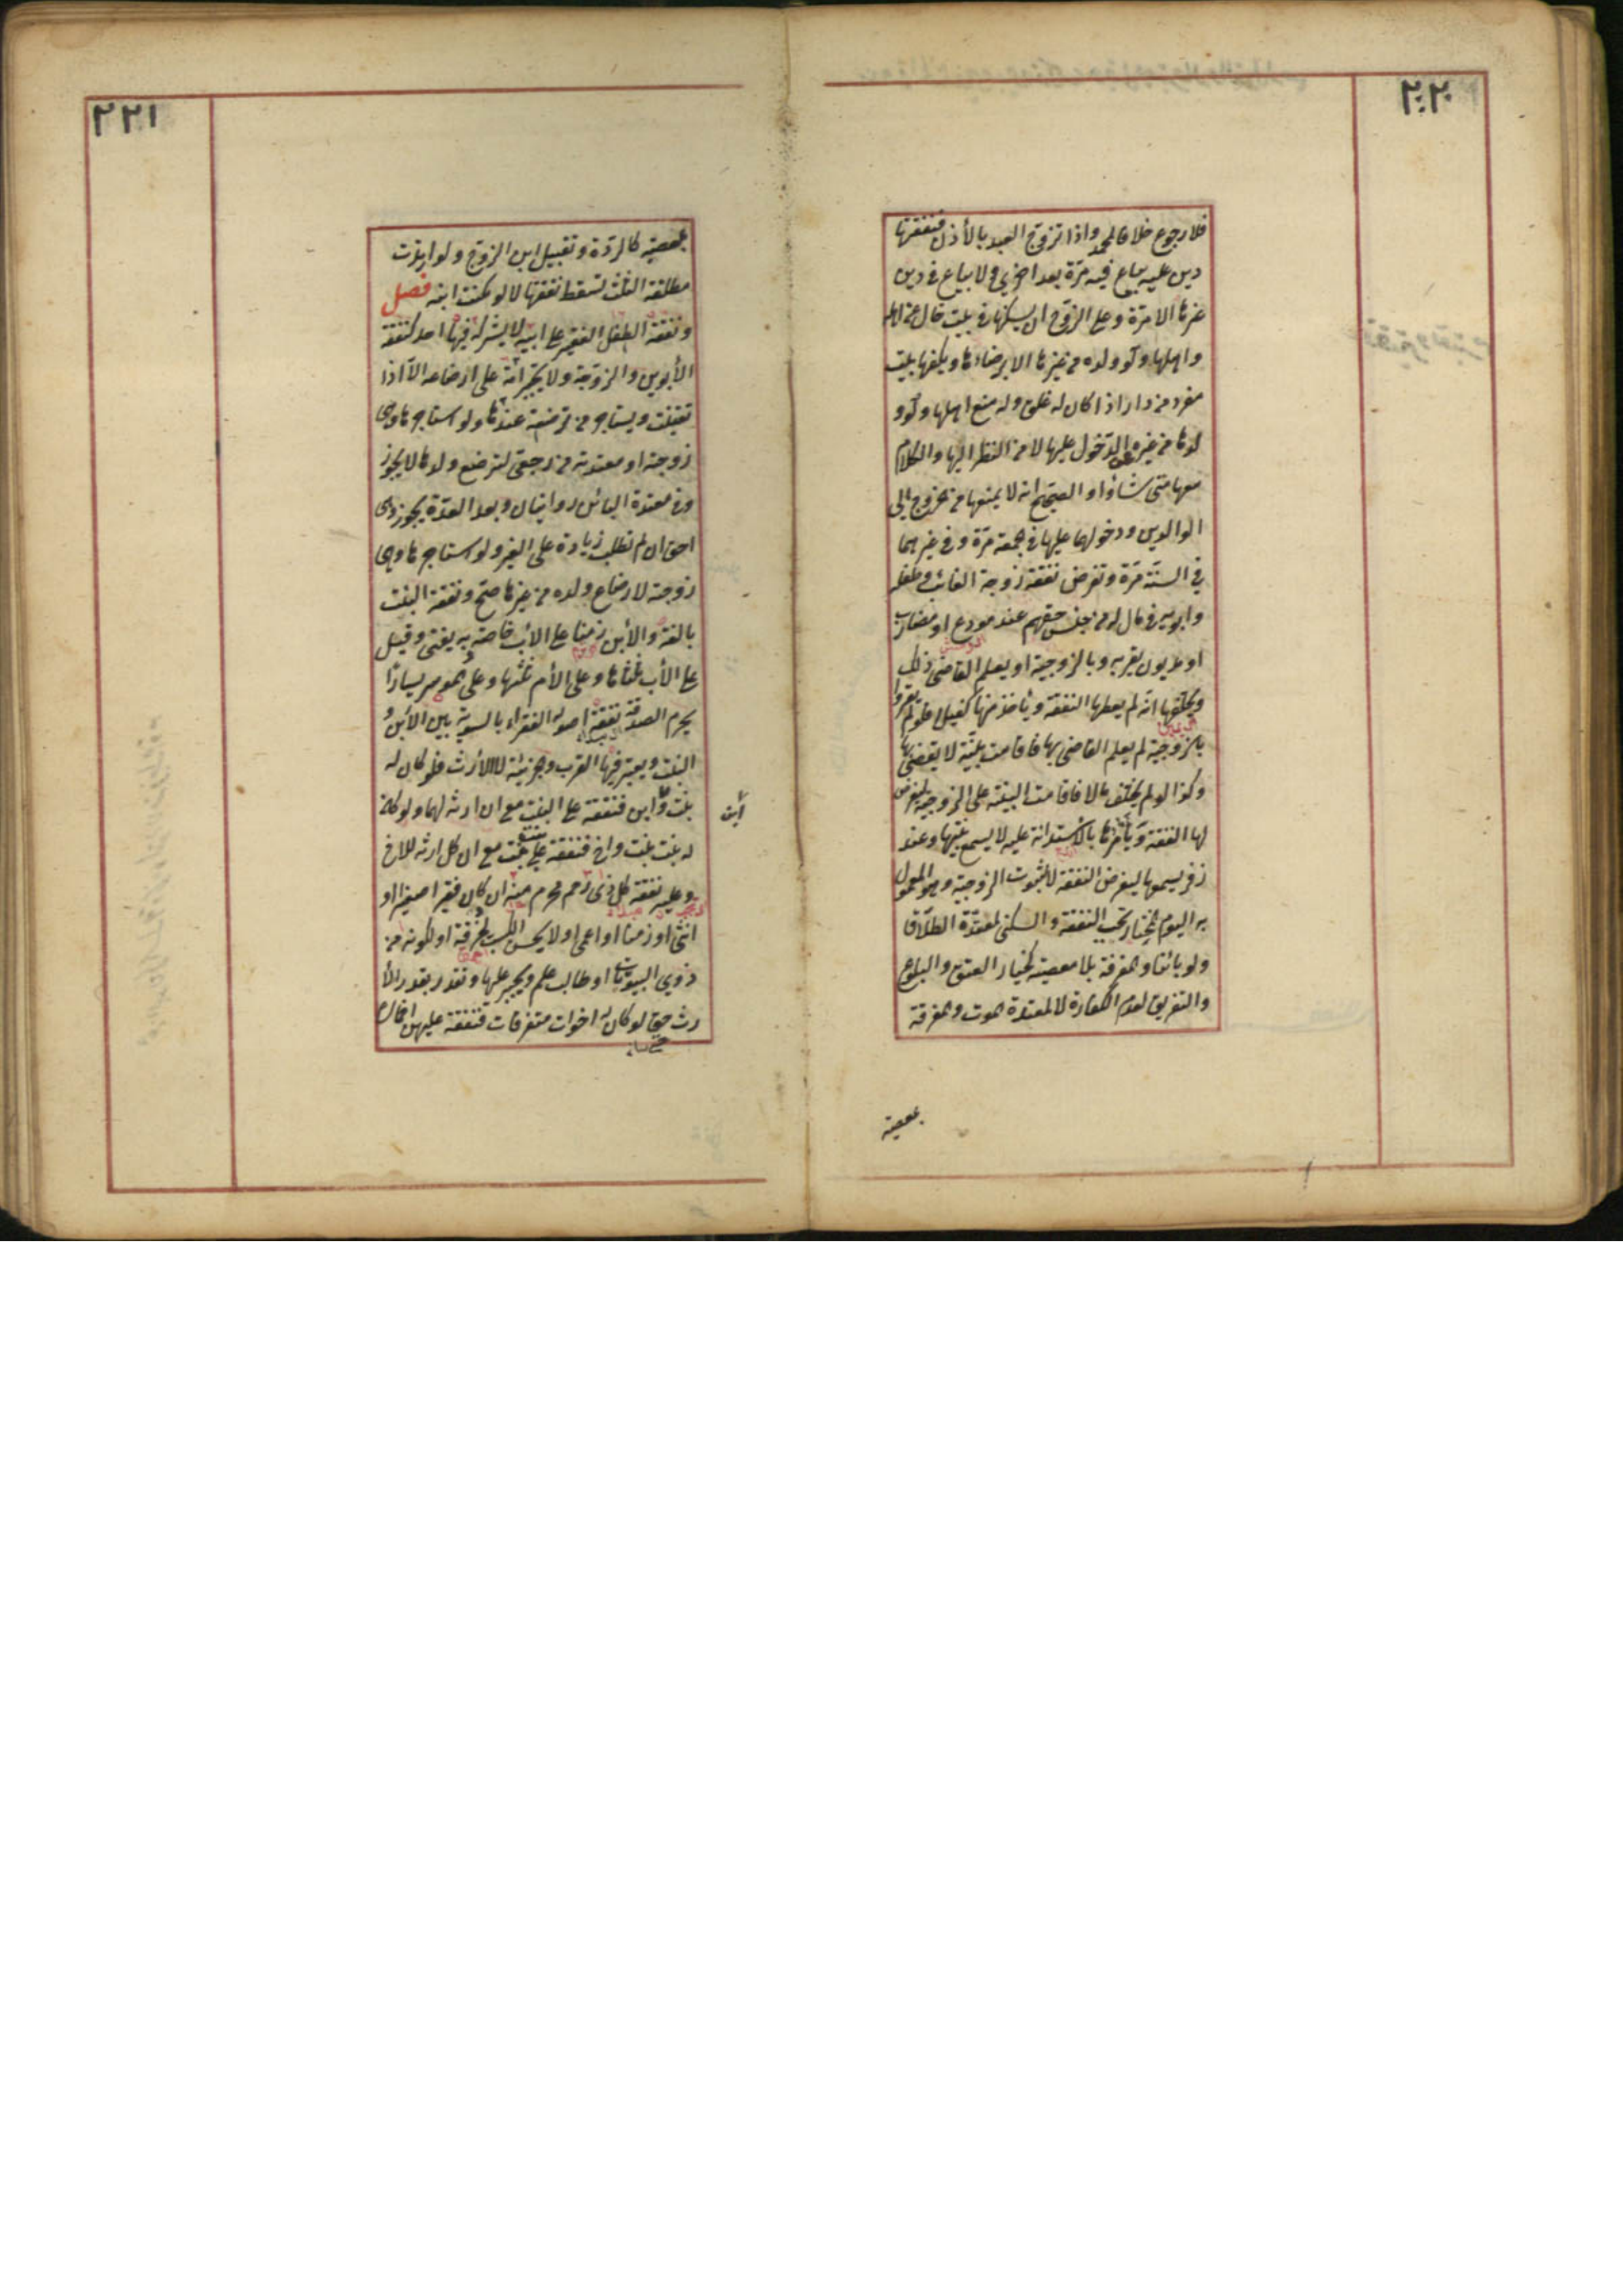 ٢٢٠
فلا رجوع خلافا لمحمد واذا تزوج العبد بالأذن فنفقتها
دين عليه يباع فيه مرة بعد اخرى ولا يباع في دين
غيرها الا مرة وعلى الزوج ان يسكنها في بيت خال عن اهله
واهلها ولو ولده من غيرها الا برضاءها ويكفيها بيت
مفرد من دار اذا كان له غلق وله منع اهلها ولو و
لدها من غيره عن الدخول عليها لا من النظر اليها والكلام
معها متى شاؤا والصحيح انه لا يمنعها من الخروج الى
الوالدين ودخولهما عليها في الجمعة مرة وفي غيرهما
في السنة مرة وتفرض نفقة زوجة الغائب وطفله
وابويه في مال له من جنس حقهم عند مودع او مضارب
او مديون يقر به وبالزوجية او يعلم القاضى ذلك
ويحلفها انه لم يعطها النفقة ويأخذ منها كفيلا فلو لم يقروا
بالزوجية لم يعلم القاضى بها فاقامت بينة لا يقضى بها
وكذا لو لم يخلف مالا فاقامت البينة على الزوجية ليفرض
لها النفقة ويأمرها بالاستدانة عليه لا يسمع بينتها وعند
زفر يسمعها ليفرض النفقة لا لثبوت الزوجية وهو المعمول
به اليوم المختار وتجب النفقة والسكنى لمعتدة الطلاق
ولو بائنا والمفرقة بلا معصية كخيار العتق والبلوغ
والتفريق لعدم الكفاءة لا لمعتدة الموت والمفرقة
بمعصية
٢٢١
بمعصية كالردة وتقبيل ابن الزوج ولو ارتدت
مطلقة الثلث تسقط نفقتها لا لو مكنت ابنه فصل
ونفقة الطفل الفقير على ابيه لا يشركه فيها احد كنفقة
الأبوين والزوجة ولا تجبر امه على ارضاعه الا اذا
تعينت ويستأجر من ترضعه عندها ولو استأجرها وهى
زوجته او معتدته من رجعى لترضع ولدها لا يجوز
وفى معتدة البائن روايتان وبعد العدة يجوز وهى
احق ان لم تطلب زيادة على الغير ولو استأجرها وهى
زوجته لارضاع ولده من غيرها صح ونفقة البنت
بالغة والأبن زمنا على الأب خاصة به يفتى وقيل
على الأب ثلثاها وعلى الأم ثلثها وعلى الموسر يسارا
يحرم الصدقة نفقة اصوله الفقراء بالسوية بين الأبن و
البنت ويعتبر فيها القرب والجزئية لا الأرث فلو كان له
بنت وابن ابن فنفقته على البنت مع ان ارثه لهما ولو كان
له بنت بنت واخ فنفقته على بنت بنت مع ان كل ارثه للاخ
وعليه نفقة كل ذى رحم محرم منه ان كان فقيرا صغيرا او
انثى او زمنا او اعمى او لا يحسن الكسب لخرقه او لكونه من
ذوي البيوتات او طالب علم ويجبر عليها وتقدر بقدر الأ
رث حتى لو كان له اخوات متفرقات فنفقته عليهن اخماسا